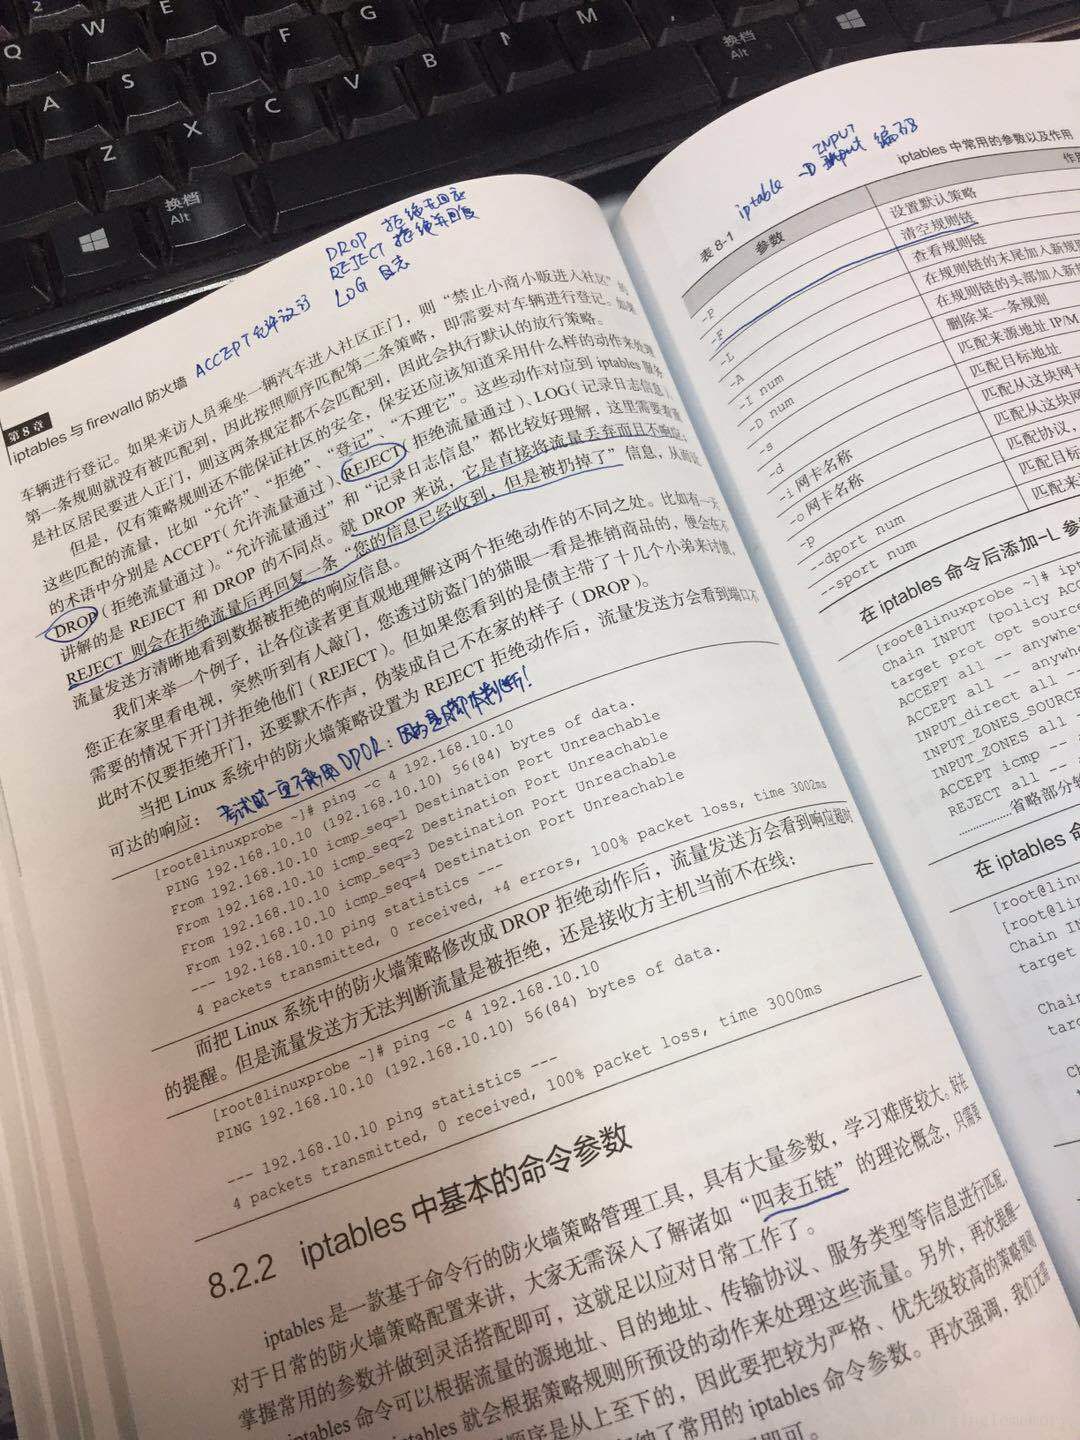 Q W E F G M
A S D B
Z X C V
换档
Alt
换档
Alt
DROP 拒绝无回应
REJECT 拒绝并回复
LOG 日志
ACCEPT 允许
第 8 章
iptables 与 firewalld 防火墙
车辆进行登记。如果来访人员乘坐一辆汽车进入社区正门，则“禁止小商小贩进入社区”的
第一条规则就没有被匹配到，因此按照顺序匹配第二条策略，即需要对车辆进行登记。如果
是社区居民要进入正门，则这两条规定都不会匹配到，因此会执行默认的放行策略。
但是，仅有策略规则还不能保证社区的安全，保安还应该知道采用什么样的动作来处理
这些匹配的流量，比如“允许”、“拒绝”、“登记”、“不理它”。这些动作对应到 iptables 服务
的术语中分别是 ACCEPT（允许流量通过）、REJECT（拒绝流量通过）、LOG（记录日志信息）、
DROP（拒绝流量通过）。“允许流量通过”和“记录日志信息”都比较好理解，这里需要着重
讲解的是 REJECT 和 DROP 的不同点。就 DROP 来说，它是直接将流量丢弃而且不响应；
REJECT 则会在拒绝流量后再回复一条“您的信息已经收到，但是被扔掉了”信息，从而让
流量发送方清晰地看到数据被拒绝的响应信息。
我们来举一个例子，让各位读者更直观地理解这两个拒绝动作的不同之处。比如有一天
您正在家里看电视，突然听到有人敲门，您透过防盗门的猫眼一看是推销商品的，便会在不
需要的情况下开门并拒绝他们（REJECT）。但如果您看到的是债主带了十几个小弟来讨债，
此时不仅要拒绝开门，还要默不作声，伪装成自己不在家的样子（DROP）。
当把 Linux 系统中的防火墙策略设置为 REJECT 拒绝动作后，流量发送方会看到端口不
可达的响应：
考试时一定不要用
[root@linuxprobe ~]# ping -c 4 192.168.10.10
PING 192.168.10.10 (192.168.10.10) 56(84) bytes of data.
From 192.168.10.10 icmp_seq=1 Destination Port Unreachable
From 192.168.10.10 icmp_seq=2 Destination Port Unreachable
From 192.168.10.10 icmp_seq=3 Destination Port Unreachable
From 192.168.10.10 icmp_seq=4 Destination Port Unreachable
--- 192.168.10.10 ping statistics ---
4 packets transmitted, 0 received, +4 errors, 100% packet loss, time 3002ms
而把 Linux 系统中的防火墙策略修改成 DROP 拒绝动作后，流量发送方会看到响应超时
的提醒。但是流量发送方无法判断流量是被拒绝，还是接收方主机当前不在线：
[root@linuxprobe ~]# ping -c 4 192.168.10.10
PING 192.168.10.10 (192.168.10.10) 56(84) bytes of data.
--- 192.168.10.10 ping statistics ---
4 packets transmitted, 0 received, 100% packet loss, time 3000ms
8.2.2 iptables 中基本的命令参数
iptables 是一款基于命令行的防火墙策略管理工具，具有大量参数，学习难度较大。好在
对于日常的防火墙策略配置来讲，大家无需深入了解诸如“四表五链”的理论概念，只需要
掌握常用的参数并做到灵活搭配即可，这就足以应对日常工作了。
iptables 命令可以根据流量的源地址、目的地址、传输协议、服务类型等信息进行匹配，
iptables 就会根据策略规则所预设的动作来处理这些流量。另外，再次提醒一
顺序是从上至下的，因此要把较为严格、优先级较高的策略规则
纳了常用的 iptables 命令参数。再次强调，我们无需
即可。
INPUT
iptable -D 编码
表 8-1 iptables 中常用的参数以及作用
参数 作用
-P 设置默认策略
-F 清空规则链
-L 查看规则链
-A 在规则链的末尾加入新规则
-I num 在规则链的头部加入新
-D num 删除某一条规则
-s 匹配来源地址 IP/M
-d 匹配目标地址
-i 网卡名称 匹配从这块网卡
-o 网卡名称 匹配从这块网
-p 匹配协议，
--dport num 匹配目标
--sport num 匹配来
在 iptables 命令后添加-L 参
[root@linuxprobe ~]# ipt
Chain INPUT (policy ACC
target prot opt source
ACCEPT all -- anywhere
ACCEPT all -- anywhe
INPUT_direct all --
INPUT_ZONES_SOURCE
INPUT_ZONES all
ACCEPT icmp --
REJECT all --
省略部分
在 iptables 命
[root@linu
[root@lin
Chain IN
target
Chai
tar